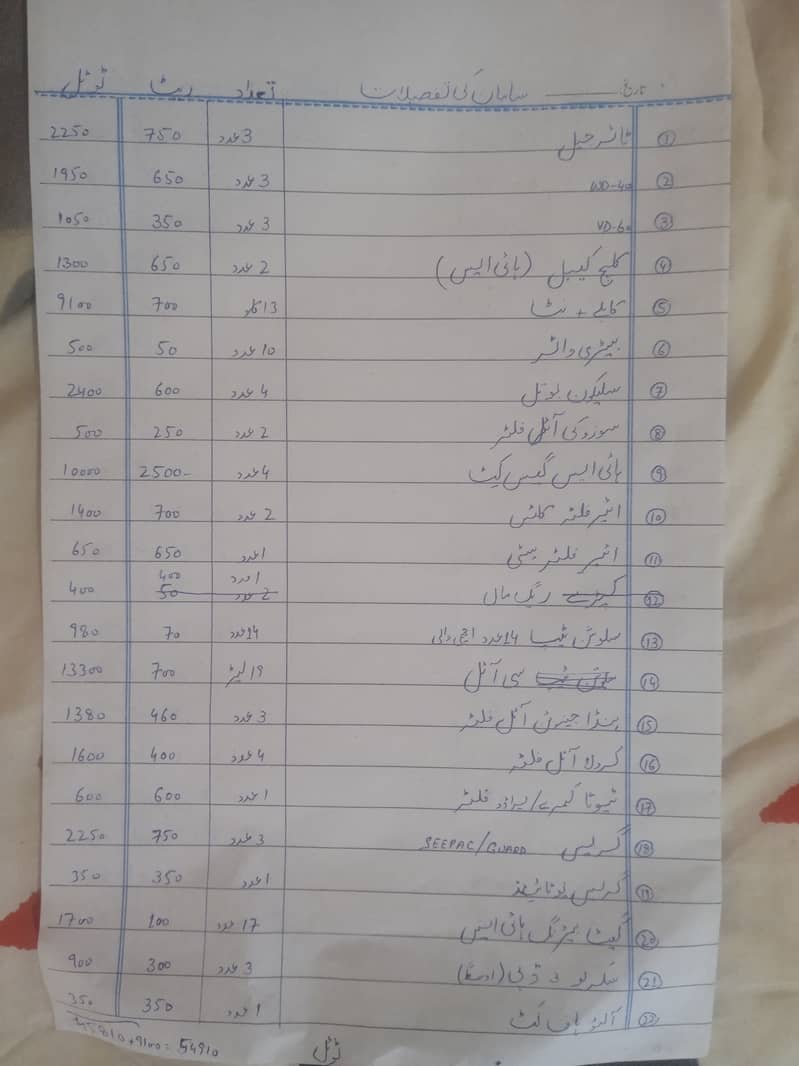 تاریخ ______ سامان کی تفصیلات تعداد ریٹ ٹوٹل
① ٹائر جیل 3 عدد 750 2250
② WD-40 3 عدد 650 1950
③ VD-60 3 عدد 350 1050
④ کلچ کیبل (ہائی ایس) 2 عدد 650 1300
⑤ کابلے + نٹ 13 کلو 700 9100
⑥ بیٹری واٹر 10 عدد 50 500
⑦ سلیکون بوتل 4 عدد 600 2400
⑧ سوزوکی آئل فلٹر 2 عدد 250 500
⑨ ہائی ایس گیس کٹ 4 عدد 2500- 10000
⑩ ائیر فلٹر 2 عدد 700 1400
⑪ ائیر فلٹر 1 عدد 650 650
⑫ ریگ مال 1 عدد 400 400
⑬ سلوشن ٹیپ 14 عدد والی 14 عدد 70 980
⑭ سی آئل 19 لیٹر 700 13300
⑮ ہنڈا آئل فلٹر 3 عدد 460 1380
⑯ کرولا آئل فلٹر 4 عدد 400 1600
⑰ ٹیوٹا کیمرے/پراڈو فلٹر 1 عدد 600 600
⑱ گریس SEEPAC/GUARD 3 عدد 750 2250
⑲ گریس 1 عدد 350 350
⑳ ہائی ایس 17 عدد 100 1700
㉑ ڈبی 3 عدد 300 900
㉒ کٹ 1 عدد 350 350
ٹوٹل 45810+9100=54910